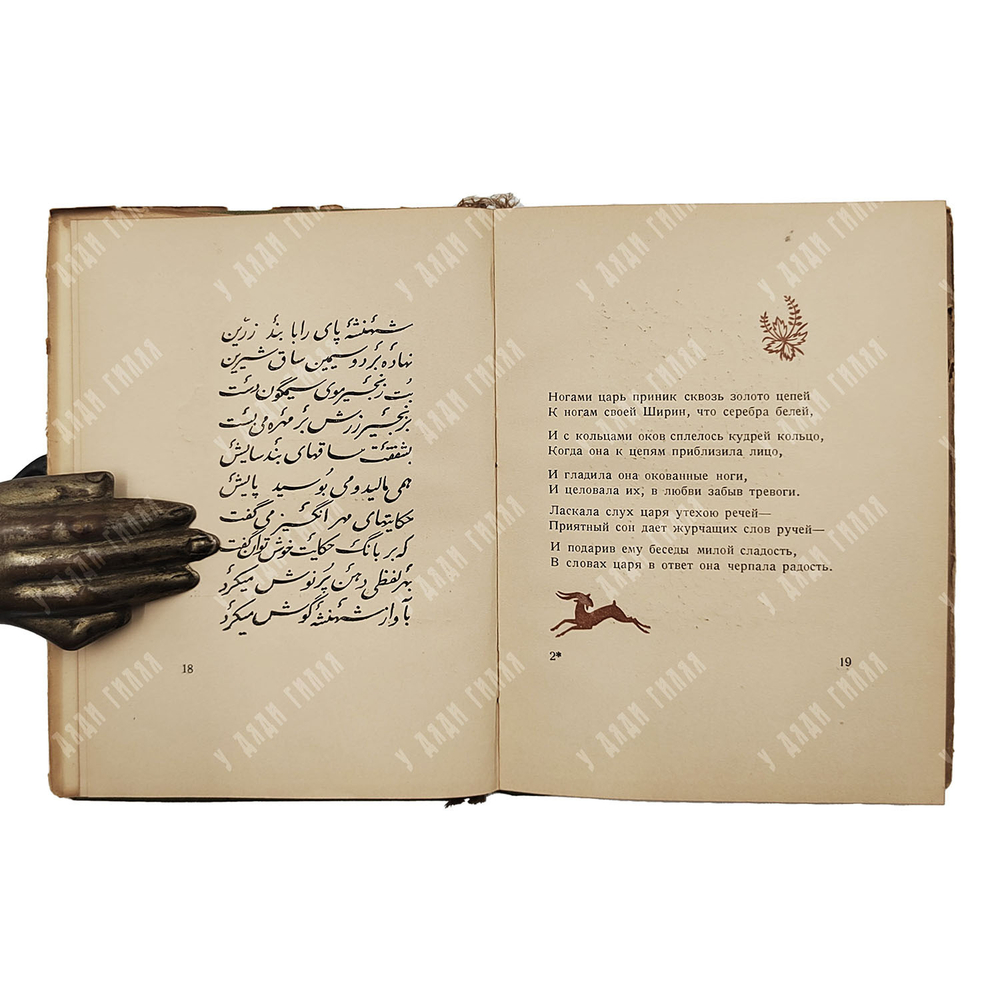 شهنشه پای را با بند زرین
نهاده بر دو سیمین ساق شیرین
بت زنجیر موی سیمگون دست
بزنجیر زرش بر مهره می بست
بشفقت ساقهای بند سایش
همی مالید و می بوسید پایش
حکایتهای مهر انگیز می گفت
که بر بانگ حکایت خوش توان خفت
بهر لفظی دهن پر نوش میکرد
بآواز شهنشه گوش میکرد
18
Ногами царь приник сквозь золото цепей
К ногам своей Ширин, что серебра белей,
И с кольцами оков сплелось кудрей кольцо,
Когда она к цепям приблизила лицо,
И гладила она окованные ноги,
И целовала их, в любви забыв тревоги.
Ласкала слух царя утехою речей—
Приятный сон дает журчащих слов ручей—
И подарив ему беседы милой сладость,
В словах царя в ответ она черпала радость.
2*
19
У ДЯДИ ГИЛЯЯ